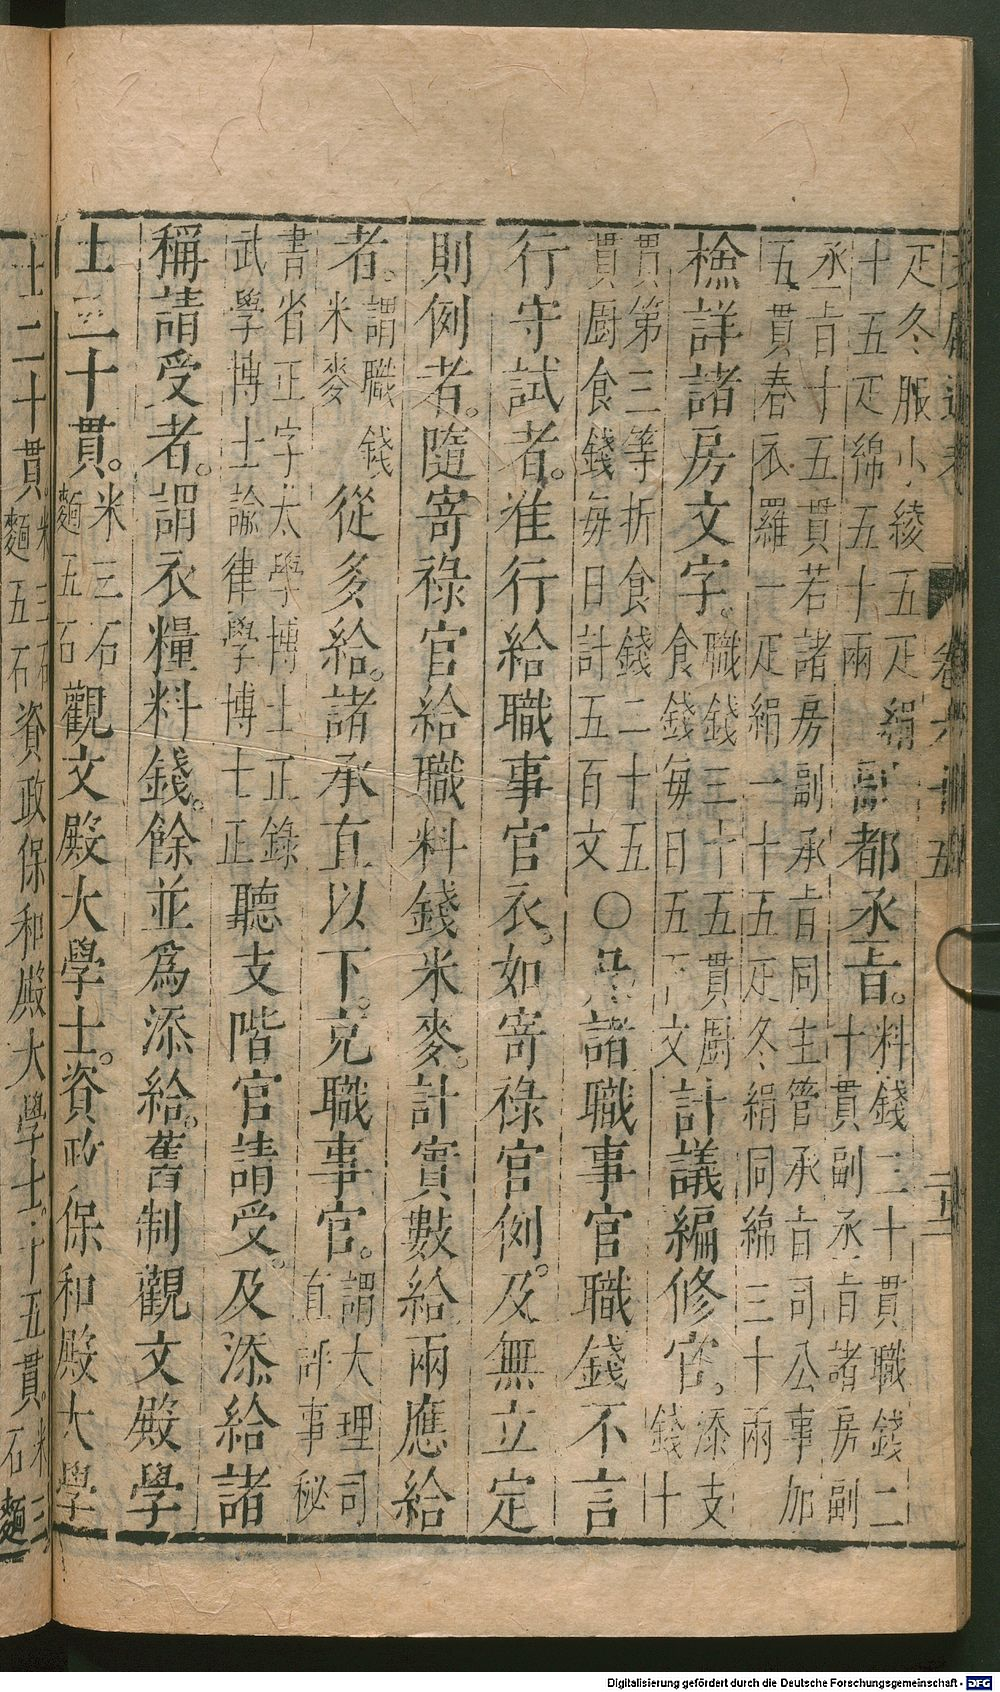 疋冬服小綾五疋絹
十五疋綿五十兩
副都承旨。
料錢三十貫職錢二
十貫副承旨諸房副
承旨十五貫若諸房副承旨同主管承旨司公事加
五貫春衣羅一疋絹一十五疋冬絹同綿三十兩
檢詳諸房文字。
職錢三十五貫厨
食錢每日五百文
計議編修官。
添支
錢十
貫第三等折食錢二十五
貫厨食錢每日計五百文
○凡諸職事官職錢不言
行守試者。准行給職事官衣。如寄祿官例。及無立定
則例者。隨寄祿官給職料錢米麥。計實數給兩應給
者。
謂職錢
米麥
從多給。諸承直以下。充職事官。
謂大理司
直評事秘
書省正字太學博士正錄
武學博士諭律學博士正
聽支階官請受。及添給諸
稱請受者。謂衣糧料錢。餘並為添給。舊制觀文殿學
士三十貫。
米三石
麵五石
觀文殿大學士。資政保和殿大學
士二十貫。
米三石
麵五石
資政保和殿大學士。十五貫。
米三
石麵
文獻通考
卷六十五
Digitalisierung gefördert durch die Deutsche Forschungsgemeinschaft - DFG